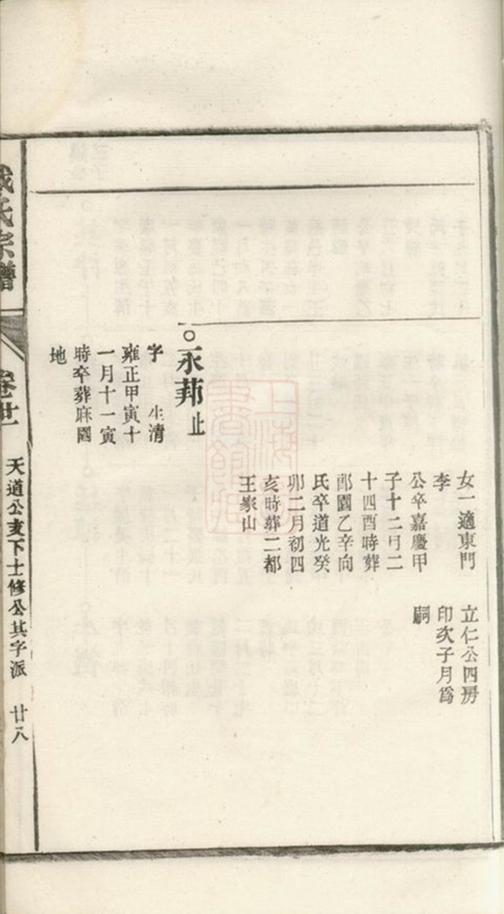 女一適東門
李
公卒嘉慶甲
子十二月二
十四酉時葬
邱園乙辛向
氏卒道光癸
卯二月初四
亥時葬二都
王家山
立仁公四房
印次子月爲
嗣
○永邦止
字 生清
雍正甲寅十
一月十一寅
時卒葬麻園
地
氏宗譜
卷廿
天道公支下士修公其字派 廿八
上海
圖書館藏